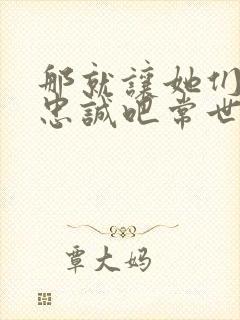 那就讓她们
忠誠吧常世
覃大妈